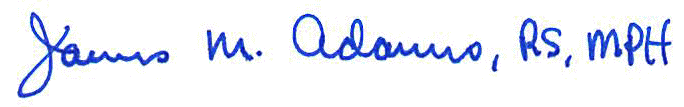 James M. Adams, RS, MPH